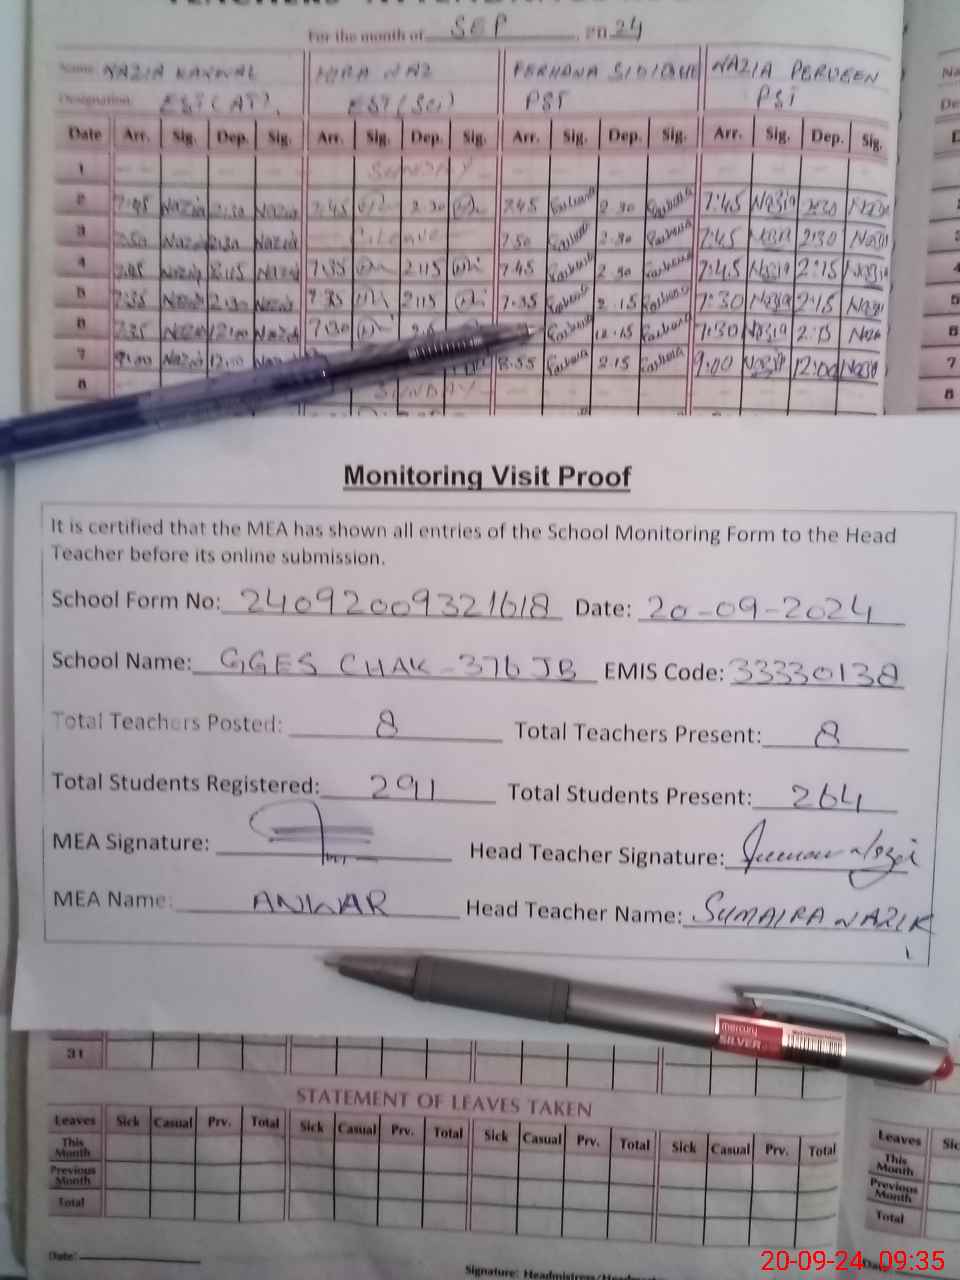 For the month of SEP, 2024
Name NAZIA KANWAL HIRA NAZ FERHANA SIDIQUE NAZIA PERVEEN
Designation EST(AT). EST(Sci) PST PST
Date Arr. Sig. Dep. Sig. Arr. Sig. Dep. Sig. Arr. Sig. Dep. Sig. Arr. Sig. Dep. Sig.
1 SUNDAY
2 7:45 Nazia 2:30 Nazia 7:45 2:30 7:45 Farhana 2:30 Farhana 7:45 Nazia 2:30 Nazia
3 7:50 Nazia 2:30 Nazia Leave 7:50 Farhana 2:30 Farhana 7:45 Nazia 2:30 Nazia
4 7:45 Nazia 2:15 Nazia 7:35 2:15 7:45 Farhana 2:30 Farhana 7:45 Nazia 2:15 Nazia
5 7:35 Nazia 2:30 Nazia 7:35 2:15 7:35 Farhana 2:15 Farhana 7:30 Nazia 2:15 Nazia
6 7:35 Nazia 12:00 Nazia 7:30 Farhana 12:15 Farhana 7:30 Nazia Nazia
7 9:00 Nazia 12:00 Nazia 8:55 Farhana 2:15 Farhana 9:00 Nazia 12:00 Nazia
8 SUNDAY
Monitoring Visit Proof
It is certified that the MEA has shown all entries of the School Monitoring Form to the Head
Teacher before its online submission.
School Form No: 24092009321618 Date: 20-09-2024
School Name: GGES CHAK-376 JB EMIS Code: 33330138
Total Teachers Posted: 8 Total Teachers Present: 8
Total Students Registered: 291 Total Students Present: 264
MEA Signature: Head Teacher Signature:
MEA Name: ANWAR Head Teacher Name: SUMAIRA NAZIR
mercury
SILVER
31
STATEMENT OF LEAVES TAKEN
Leaves Sick Casual Prv. Total Sick Casual Prv. Total Sick Casual Prv. Total Sick Casual Prv. Total Leaves
This Month This Month
Previous Month Previous Month
Total Total
Date:
Signature: Headmistress/
20-09-24 09:35